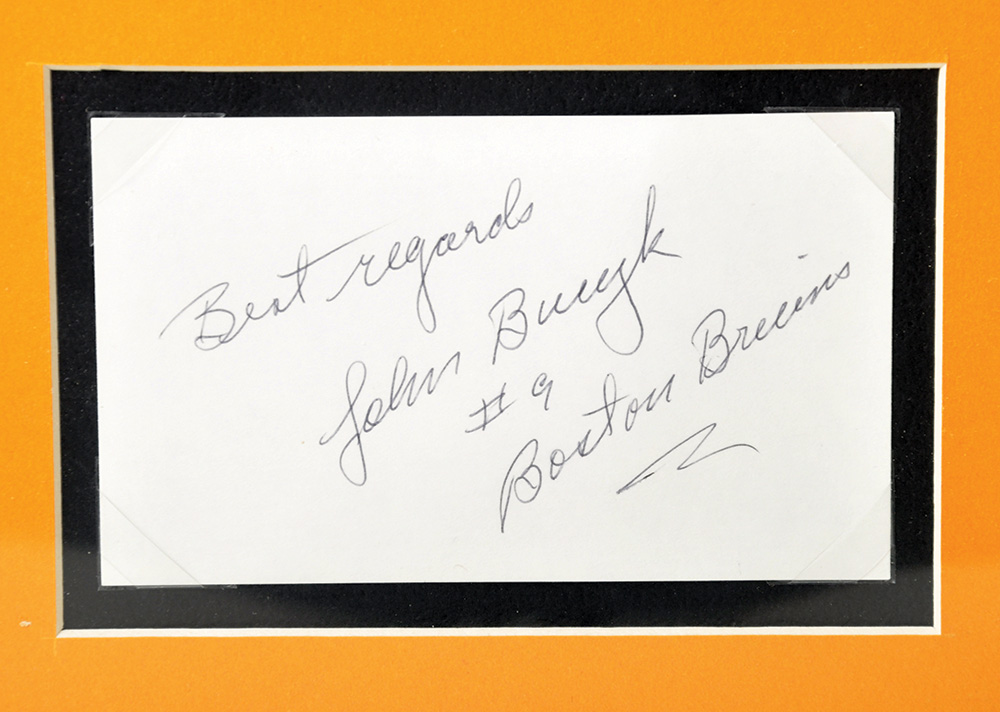 Best regards
John Bucyk
#9
Boston Bruins